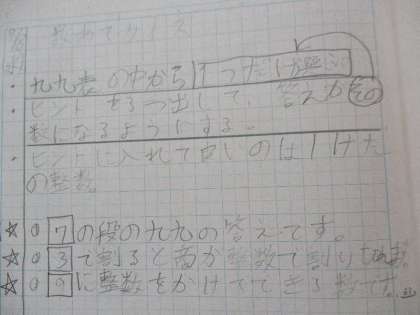 数あてクイズ
・九九表の中から1つだけ選ぶ
・ヒントを3つ出して、答えがその
数になるようにする。
・ヒントに入れて良いのは1けた
の整数
☆ 7の段の九九の答えです。
☆ 3で割ると商が整数で割り
☆ 9に整数をかけてできる数です。